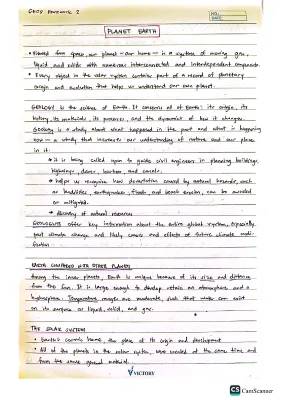 GEOD Homework 2
NO.:
DATE:
PLANET EARTH
• Viewed from space, our planet - our home - is a mixture of moving gas,
liquid and solids with numerous interconnected and interdependent components.
• Every object in the solar system contains part of a record of planetary
origin and evolution that helps us understand our own planet.
GEOLOGY is the science of Earth. It concerns all of Earth: its origin, its
history, its materials, its processes, and the dynamics of how it changes.
Geology is a study about what happened in the past and what is happening
now - a study that increases our understanding of nature and our place
in it.
→ it is being called upon to guide civil engineers in planning buildings,
highways, dams, harbors, and canals.
→ helps us recognize how devastation caused by natural hazards, such
as landslides, earthquakes, floods, and beach erosion, can be avoided
or mitigated.
→ discovery of natural resources
GEOLOGISTS offer key information about the entire global system, especially
past climate change and likely causes and effects of future climate modi-
fication
EARTH COMPARED WITH OTHER PLANETS
Among the inner planets, Earth is unique because of its size and distance
from the sun. It is large enough to develop retain an atmosphere and a
hydrosphere. Temperature ranges are moderate, such that water can exist
on its surface as liquid, solid, and gas.
THE SOLAR SYSTEM
• Earth's cosmic home, the place of its origin and development
• All of the planets in the solar system were created at the same time and
from the same general material.
VICTORY
CS CamScanner